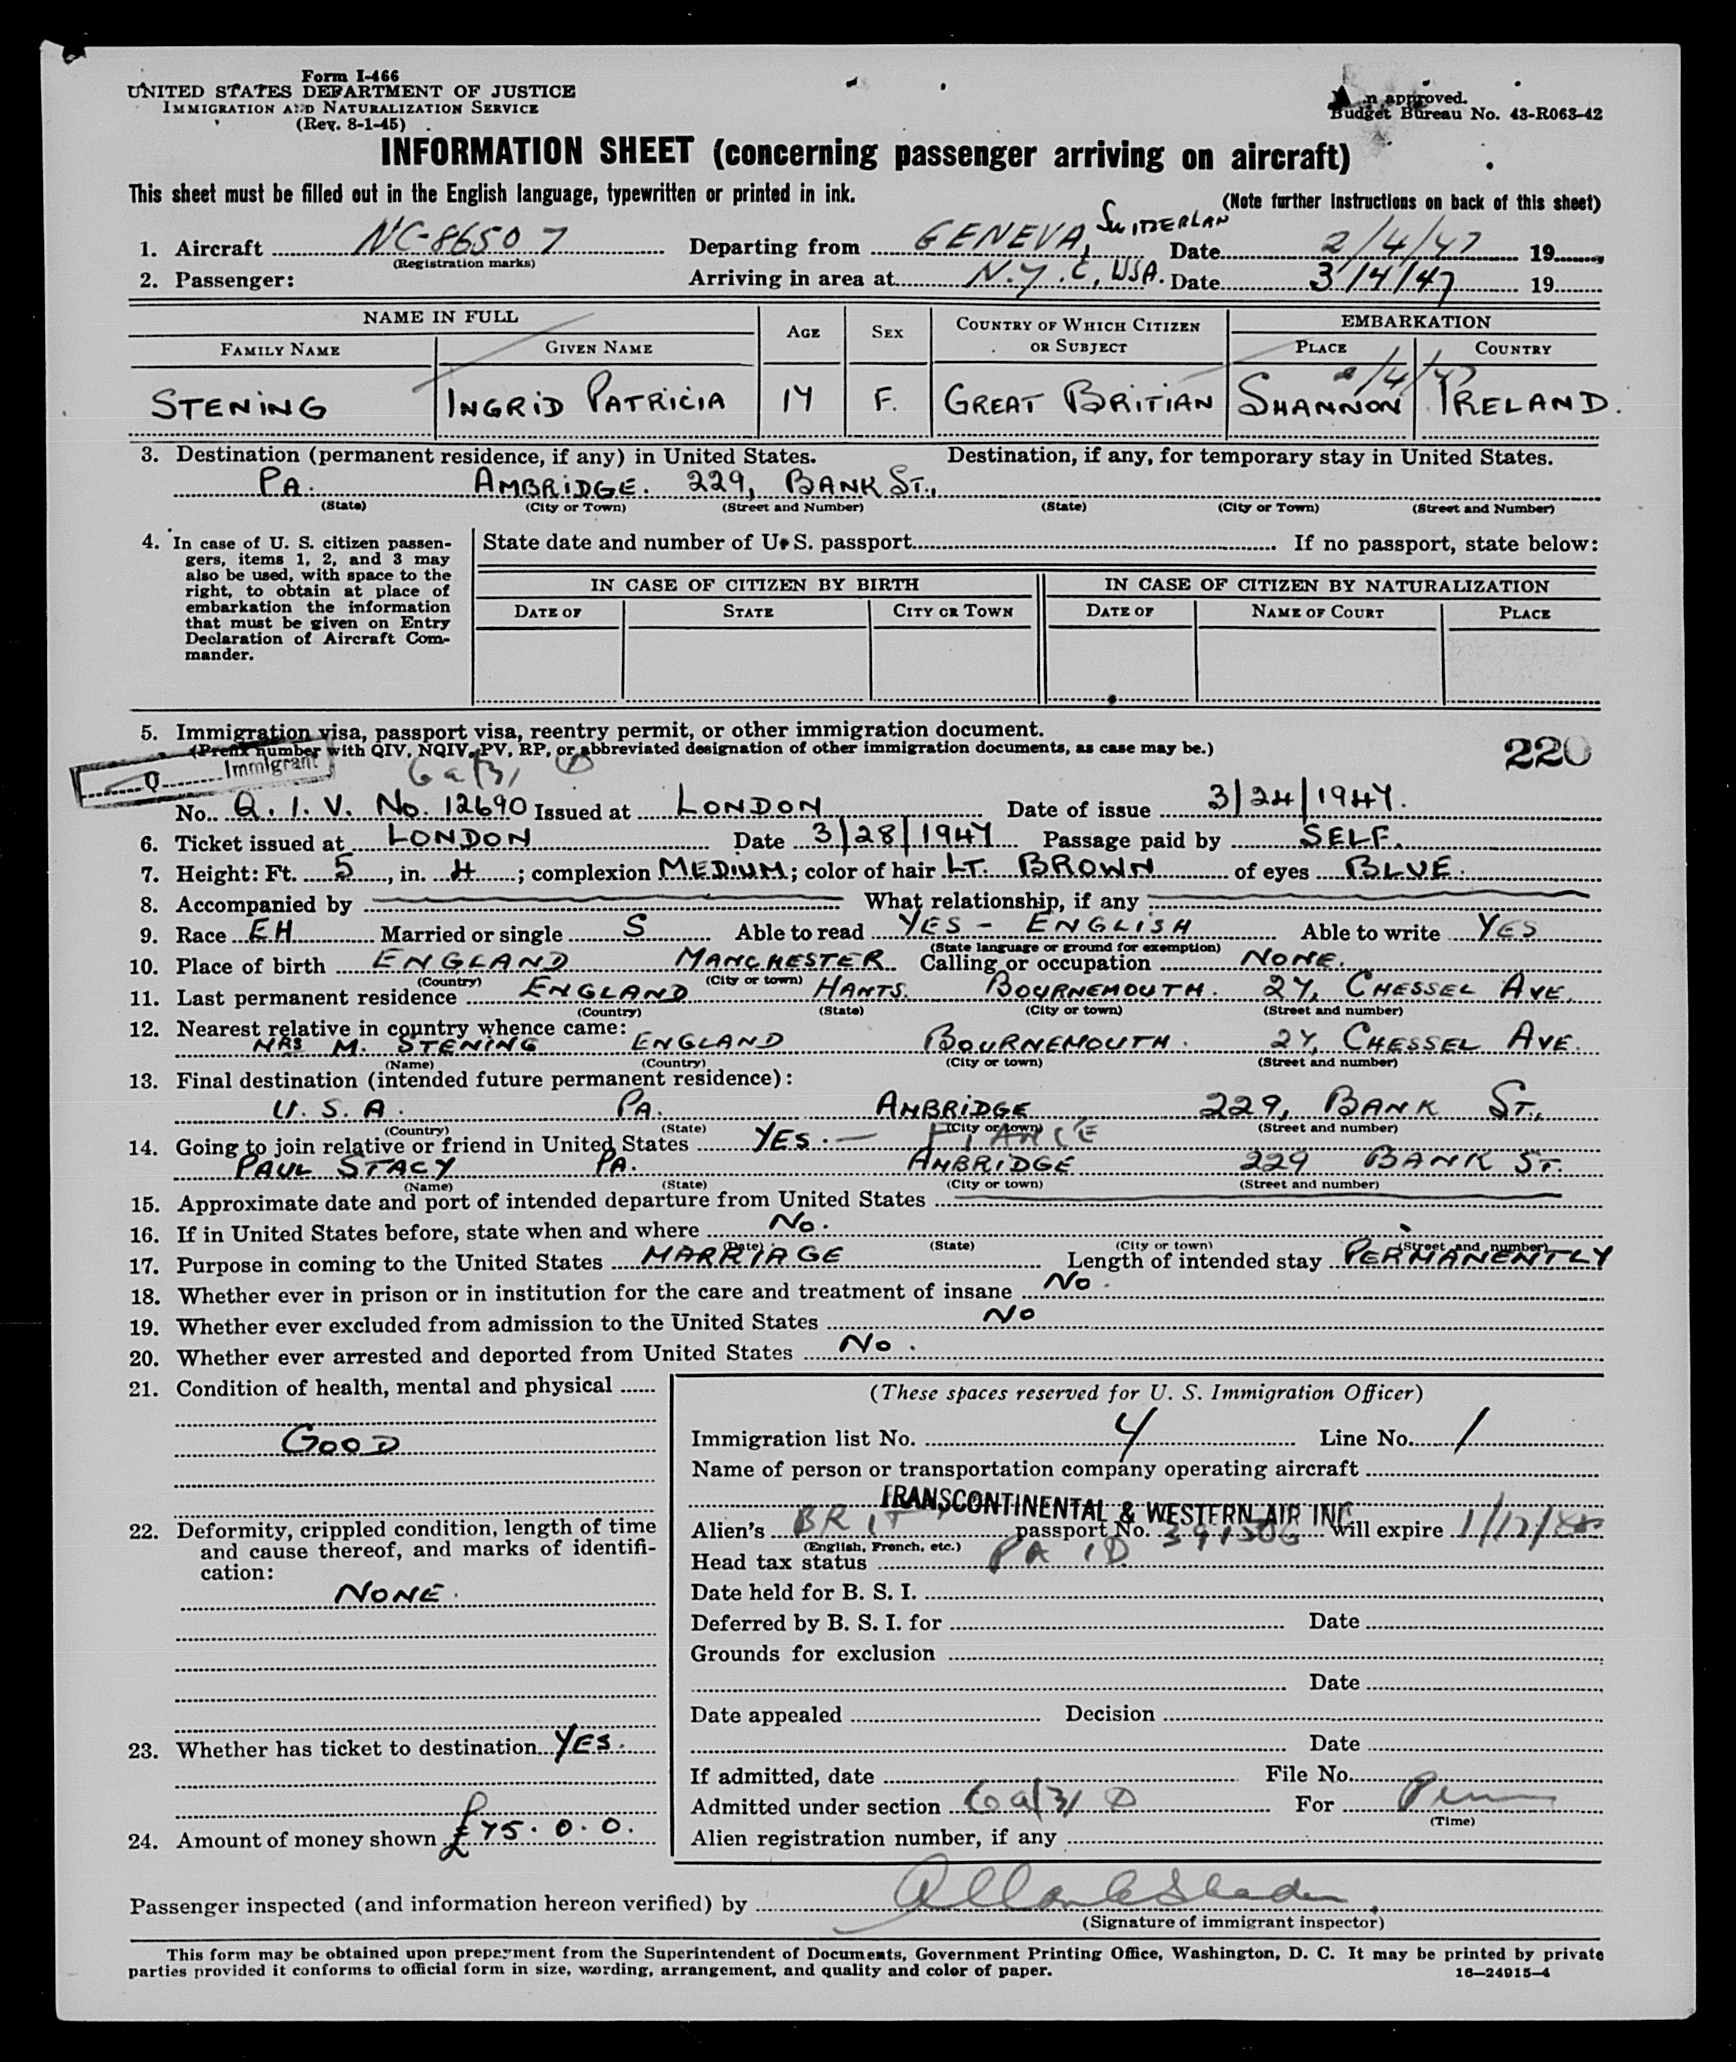 Form I-466
UNITED STATES DEPARTMENT OF JUSTICE
IMMIGRATION AND NATURALIZATION SERVICE
(Rev. 8-1-45)
n approved.
Budget Bureau No. 43-R063-42
INFORMATION SHEET (concerning passenger arriving on aircraft)
This sheet must be filled out in the English language, typewritten or printed in ink.
(Note further instructions on back of this sheet)
1. Aircraft NC-86507 Departing from GENEVA, SWITZERLAN Date 2/4/47 19
(Registration marks)
2. Passenger: Arriving in area at N.Y.C, USA. Date 3/4/47 19
NAME IN FULL AGE SEX COUNTRY OF WHICH CITIZEN OR SUBJECT EMBARKATION
FAMILY NAME GIVEN NAME PLACE COUNTRY
2/4/47
STENING INGRID PATRICIA 17 F. GREAT BRITIAN SHANNON IRELAND.
3. Destination (permanent residence, if any) in United States. Destination, if any, for temporary stay in United States.
PA. AMBRIDGE. 229, BANK ST.,
(State) (City or Town) (Street and Number) (State) (City or Town) (Street and Number)
4. In case of U. S. citizen passengers, items 1, 2, and 3 may also be used, with space to the right, to obtain at place of embarkation the information that must be given on Entry Declaration of Aircraft Commander.
State date and number of U. S. passport If no passport, state below:
IN CASE OF CITIZEN BY BIRTH IN CASE OF CITIZEN BY NATURALIZATION
DATE OF STATE CITY OR TOWN DATE OF NAME OF COURT PLACE
5. Immigration visa, passport visa, reentry permit, or other immigration document.
(Prefix number with QIV, NQIV, PV, RP, or abbreviated designation of other immigration documents, as case may be.)
220
Q Immigrant
6a(3)
No. Q. I. V. No. 12690 Issued at LONDON Date of issue 3/24/1947.
6. Ticket issued at LONDON Date 3/28/1947 Passage paid by SELF.
7. Height: Ft. 5, in. 4; complexion MEDIUM; color of hair LT. BROWN of eyes BLUE.
8. Accompanied by What relationship, if any
9. Race EH Married or single S Able to read YES - ENGLISH Able to write YES
(State language or ground for exemption)
10. Place of birth ENGLAND MANCHESTER Calling or occupation NONE.
(Country) (City or town)
11. Last permanent residence ENGLAND HANTS. BOURNEMOUTH. 27, CHESSEL AVE.
(Country) (State) (City or town) (Street and number)
12. Nearest relative in country whence came:
MRS M. STENING ENGLAND BOURNEMOUTH. 27, CHESSEL AVE.
(Name) (Country) (City or town) (Street and number)
13. Final destination (intended future permanent residence):
U.S.A. PA. AMBRIDGE 229, BANK ST.,
(Country) (State) (City or town) (Street and number)
14. Going to join relative or friend in United States YES. — FIANCE
PAUL STACY PA. AMBRIDGE 229 BANK ST.
(Name) (State) (City or town) (Street and number)
15. Approximate date and port of intended departure from United States
16. If in United States before, state when and where No.
(Date) (State) (City or town) (Street and number)
17. Purpose in coming to the United States MARRIAGE Length of intended stay PERMANENTLY
18. Whether ever in prison or in institution for the care and treatment of insane No.
19. Whether ever excluded from admission to the United States No
20. Whether ever arrested and deported from United States No.
21. Condition of health, mental and physical
GOOD
22. Deformity, crippled condition, length of time and cause thereof, and marks of identification:
NONE.
23. Whether has ticket to destination YES.
24. Amount of money shown £75.0.0.
(These spaces reserved for U. S. Immigration Officer)
Immigration list No. 4 Line No. 1
Name of person or transportation company operating aircraft
TRANSCONTINENTAL & WESTERN AIR INC
Alien's BRIT passport No. will expire
(English, French, etc.)
Head tax status PAID
Date held for B. S. I.
Deferred by B. S. I. for Date
Grounds for exclusion
Date
Date appealed Decision
Date
If admitted, date File No.
Admitted under section 6a(3) For
(Time)
Alien registration number, if any
Passenger inspected (and information hereon verified) by
(Signature of immigrant inspector)
This form may be obtained upon prepayment from the Superintendent of Documents, Government Printing Office, Washington, D. C. It may be printed by private
parties provided it conforms to official form in size, wording, arrangement, and quality and color of paper.
16—24915-4